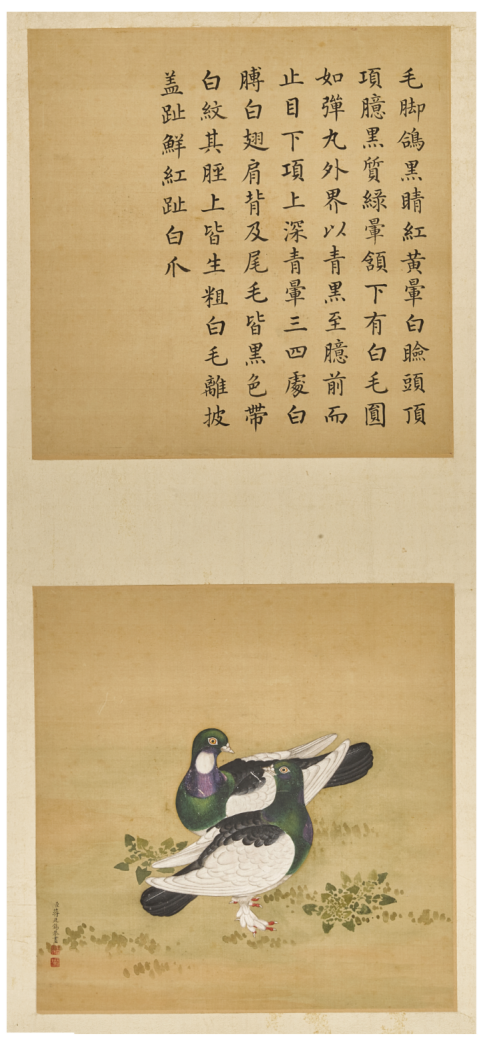 毛脚鴿黑睛紅黃暈白瞼頭頂
項臆黑質綠暈頷下有白毛圓
如彈丸外界以青黑至臆前而
止目下項上深青暈三四處白
膊白翅肩背及尾毛皆黑色帶
白紋其脛上皆生粗白毛離披
盖趾鮮紅趾白爪